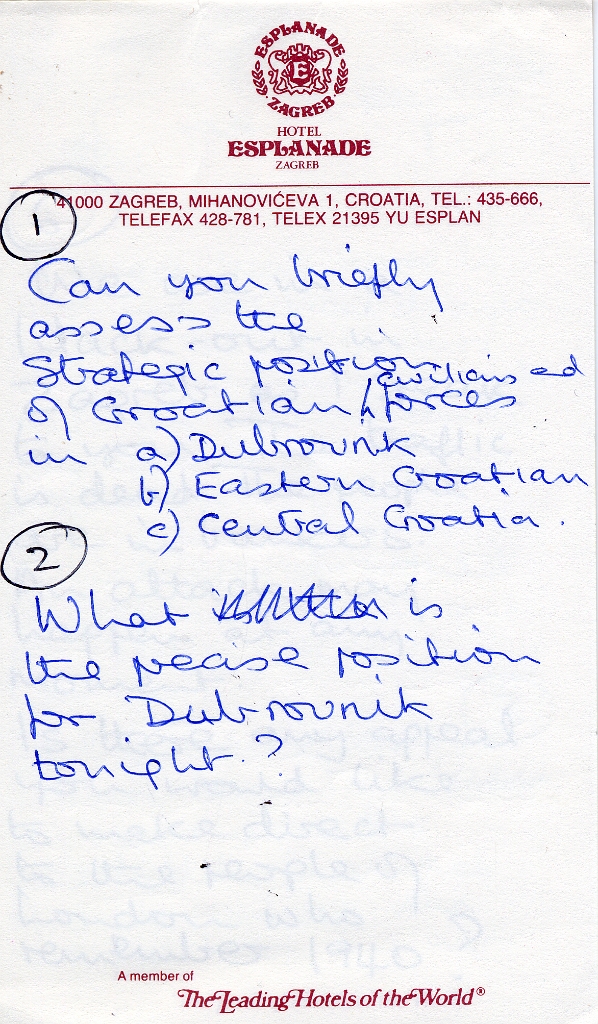 ESPLANADE
E
ZAGREB
HOTEL
ESPLANADE
ZAGREB
41000 ZAGREB, MIHANOVIĆEVA 1, CROATIA, TEL.: 435-666,
TELEFAX 428-781, TELEX 21395 YU ESPLAN
1
Can you briefly
assess the
Strategic position
civilians ad
of Croatian / forces
in a) Dubrovnik
b) Eastern Croatian
c) Central Croatia.
2
What is
the precise position
for Dubrovnik
tonight?
to make direct
to the people of
London who
remember 1940?
A member of
The Leading Hotels of the World®